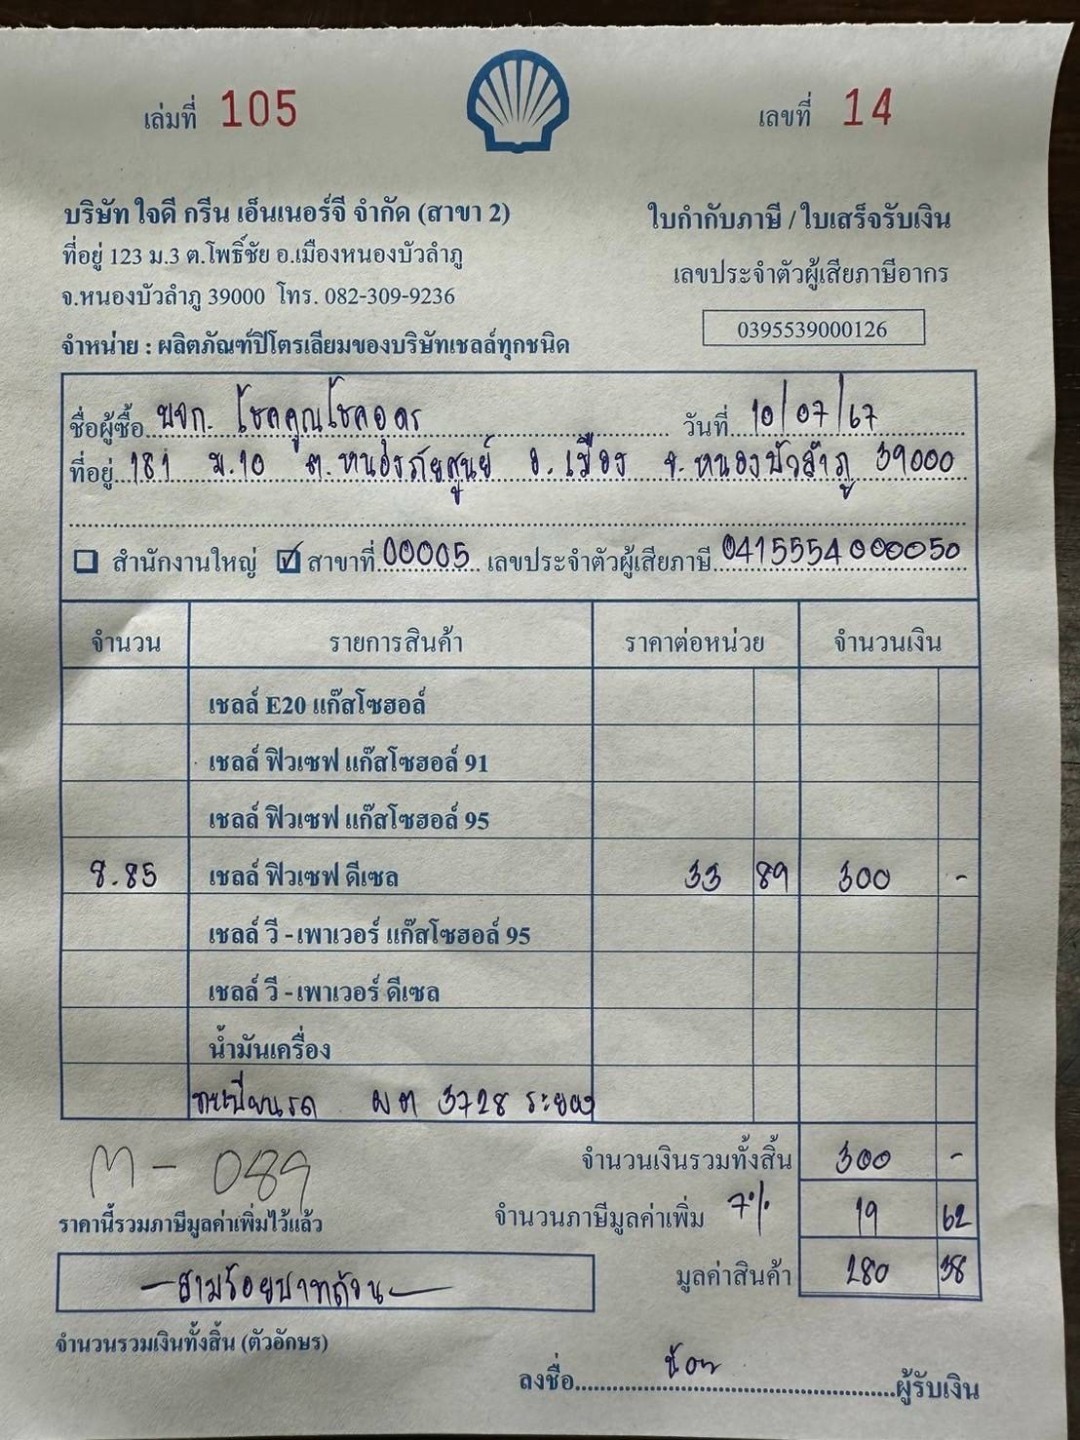 เล่มที่ 105
เลขที่ 14
บริษัท ใจดี กรีน เอ็นเนอร์จี จำกัด (สาขา 2)
ใบกำกับภาษี / ใบเสร็จรับเงิน
ที่อยู่ 123 ม.3 ต.โพธิ์ชัย อ.เมืองหนองบัวลำภู
เลขประจำตัวผู้เสียภาษีอากร
จ.หนองบัวลำภู 39000 โทร. 082-309-9236
0395539000126
จำหน่าย : ผลิตภัณฑ์ปิโตรเลียมของบริษัทเชลล์ทุกชนิด
ชื่อผู้ซื้อ หจก. โชคคูณโชคอุดร วันที่ 10/07/67
ที่อยู่ 181 ม.10 ต.หนองภัยศูนย์ อ.เมือง จ.หนองบัวลำภู 39000
สำนักงานใหญ่ สาขาที่ 00005 เลขประจำตัวผู้เสียภาษี 0415554000050
จำนวน รายการสินค้า ราคาต่อหน่วย จำนวนเงิน
เชลล์ E20 แก๊สโซฮอล์
เชลล์ ฟิวเซฟ แก๊สโซฮอล์ 91
เชลล์ ฟิวเซฟ แก๊สโซฮอล์ 95
8.85 เชลล์ ฟิวเซฟ ดีเซล 33 89 300 -
เชลล์ วี - เพาเวอร์ แก๊สโซฮอล์ 95
เชลล์ วี - เพาเวอร์ ดีเซล
น้ำมันเครื่อง
ทะเบียนรถ ผต 3728 ระยอง
จำนวนเงินรวมทั้งสิ้น 300 -
M - 089
จำนวนภาษีมูลค่าเพิ่ม 7% 19 62
ราคานี้รวมภาษีมูลค่าเพิ่มไว้แล้ว
มูลค่าสินค้า 280 38
-สามร้อยบาทถ้วน-
จำนวนรวมเงินทั้งสิ้น (ตัวอักษร)
ลงชื่อ ผู้รับเงิน